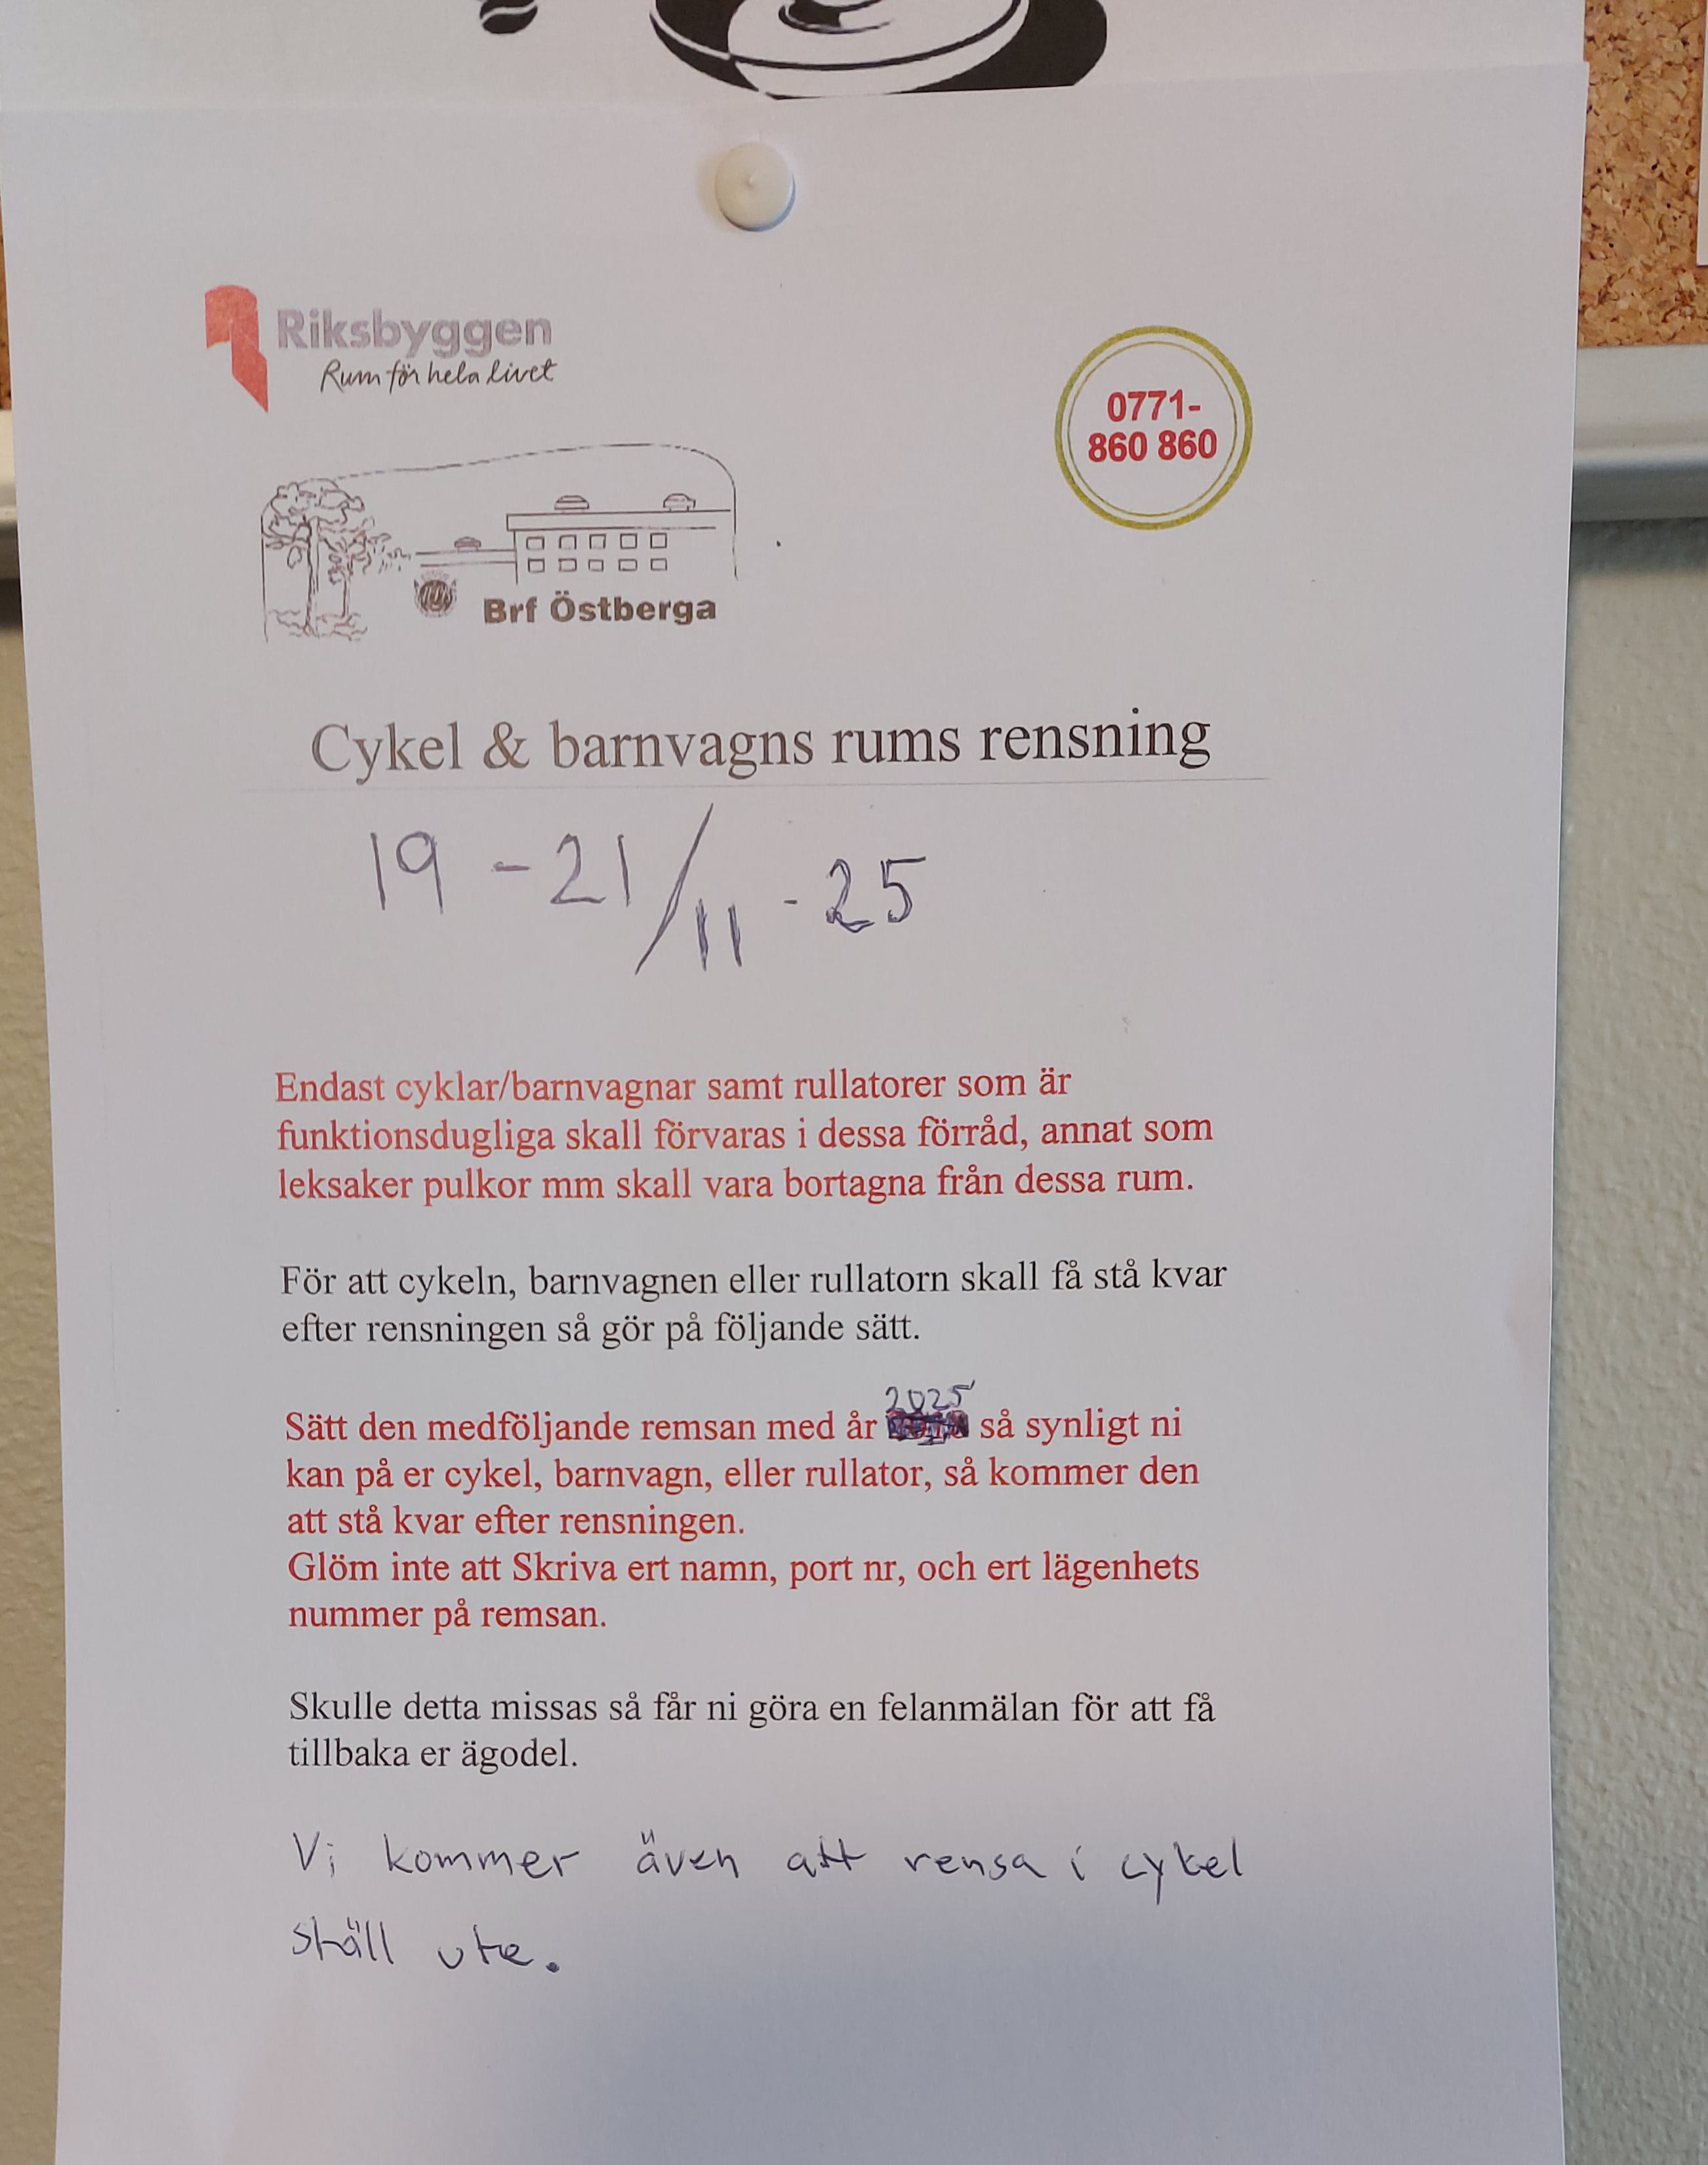 Riksbyggen
Rum för hela livet
0771-
860 860
Brf Östberga
Cykel & barnvagns rums rensning
19 - 21/11 - 25
Endast cyklar/barnvagnar samt rullatorer som är
funktionsdugliga skall förvaras i dessa förråd, annat som
leksaker pulkor mm skall vara bortagna från dessa rum.
För att cykeln, barnvagnen eller rullatorn skall få stå kvar
efter rensningen så gör på följande sätt.
Sätt den medföljande remsan med år 2025 så synligt ni
kan på er cykel, barnvagn, eller rullator, så kommer den
att stå kvar efter rensningen.
Glöm inte att Skriva ert namn, port nr, och ert lägenhets
nummer på remsan.
Skulle detta missas så får ni göra en felanmälan för att få
tillbaka er ägodel.
Vi kommer även att rensa i cykel
ställ ute.